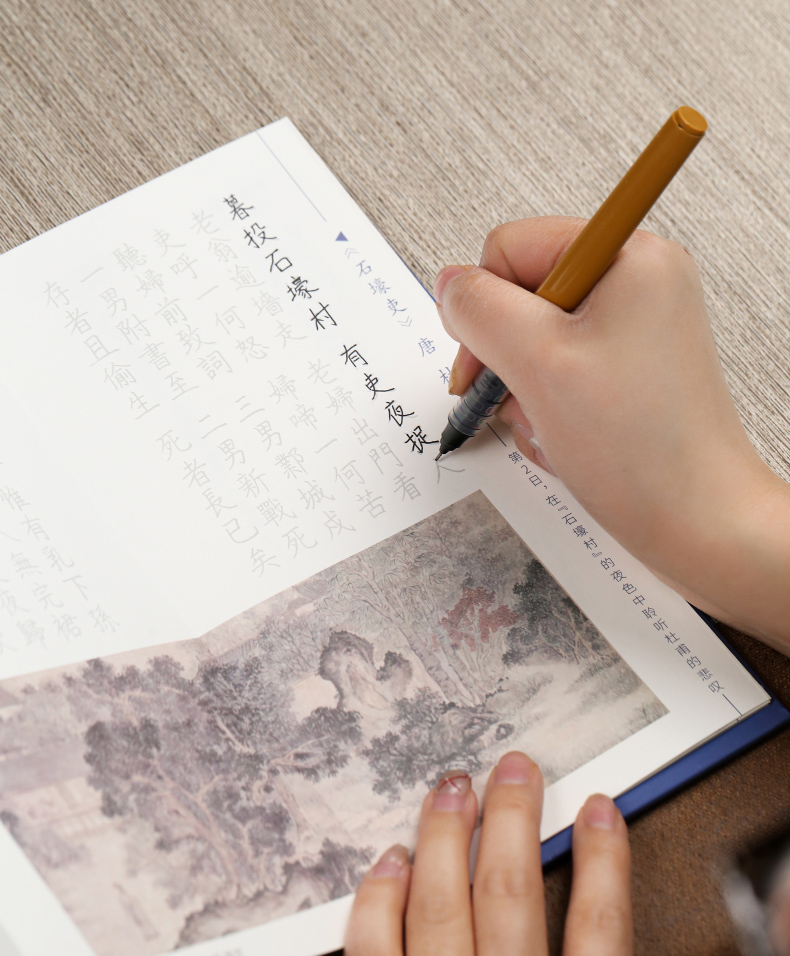 《石壕吏》 唐 杜
第2日，在『石壕村』的夜色中聆听杜甫的悲叹
暮投石壕村 有吏夜捉人
老翁逾墙走 老婦出門看
吏呼一何怒 婦啼一何苦
聽婦前致詞 三男鄴城戍
一男附書至 二男新戰死
存者且偷生 死者長已矣
惟有乳下孫
無完裙